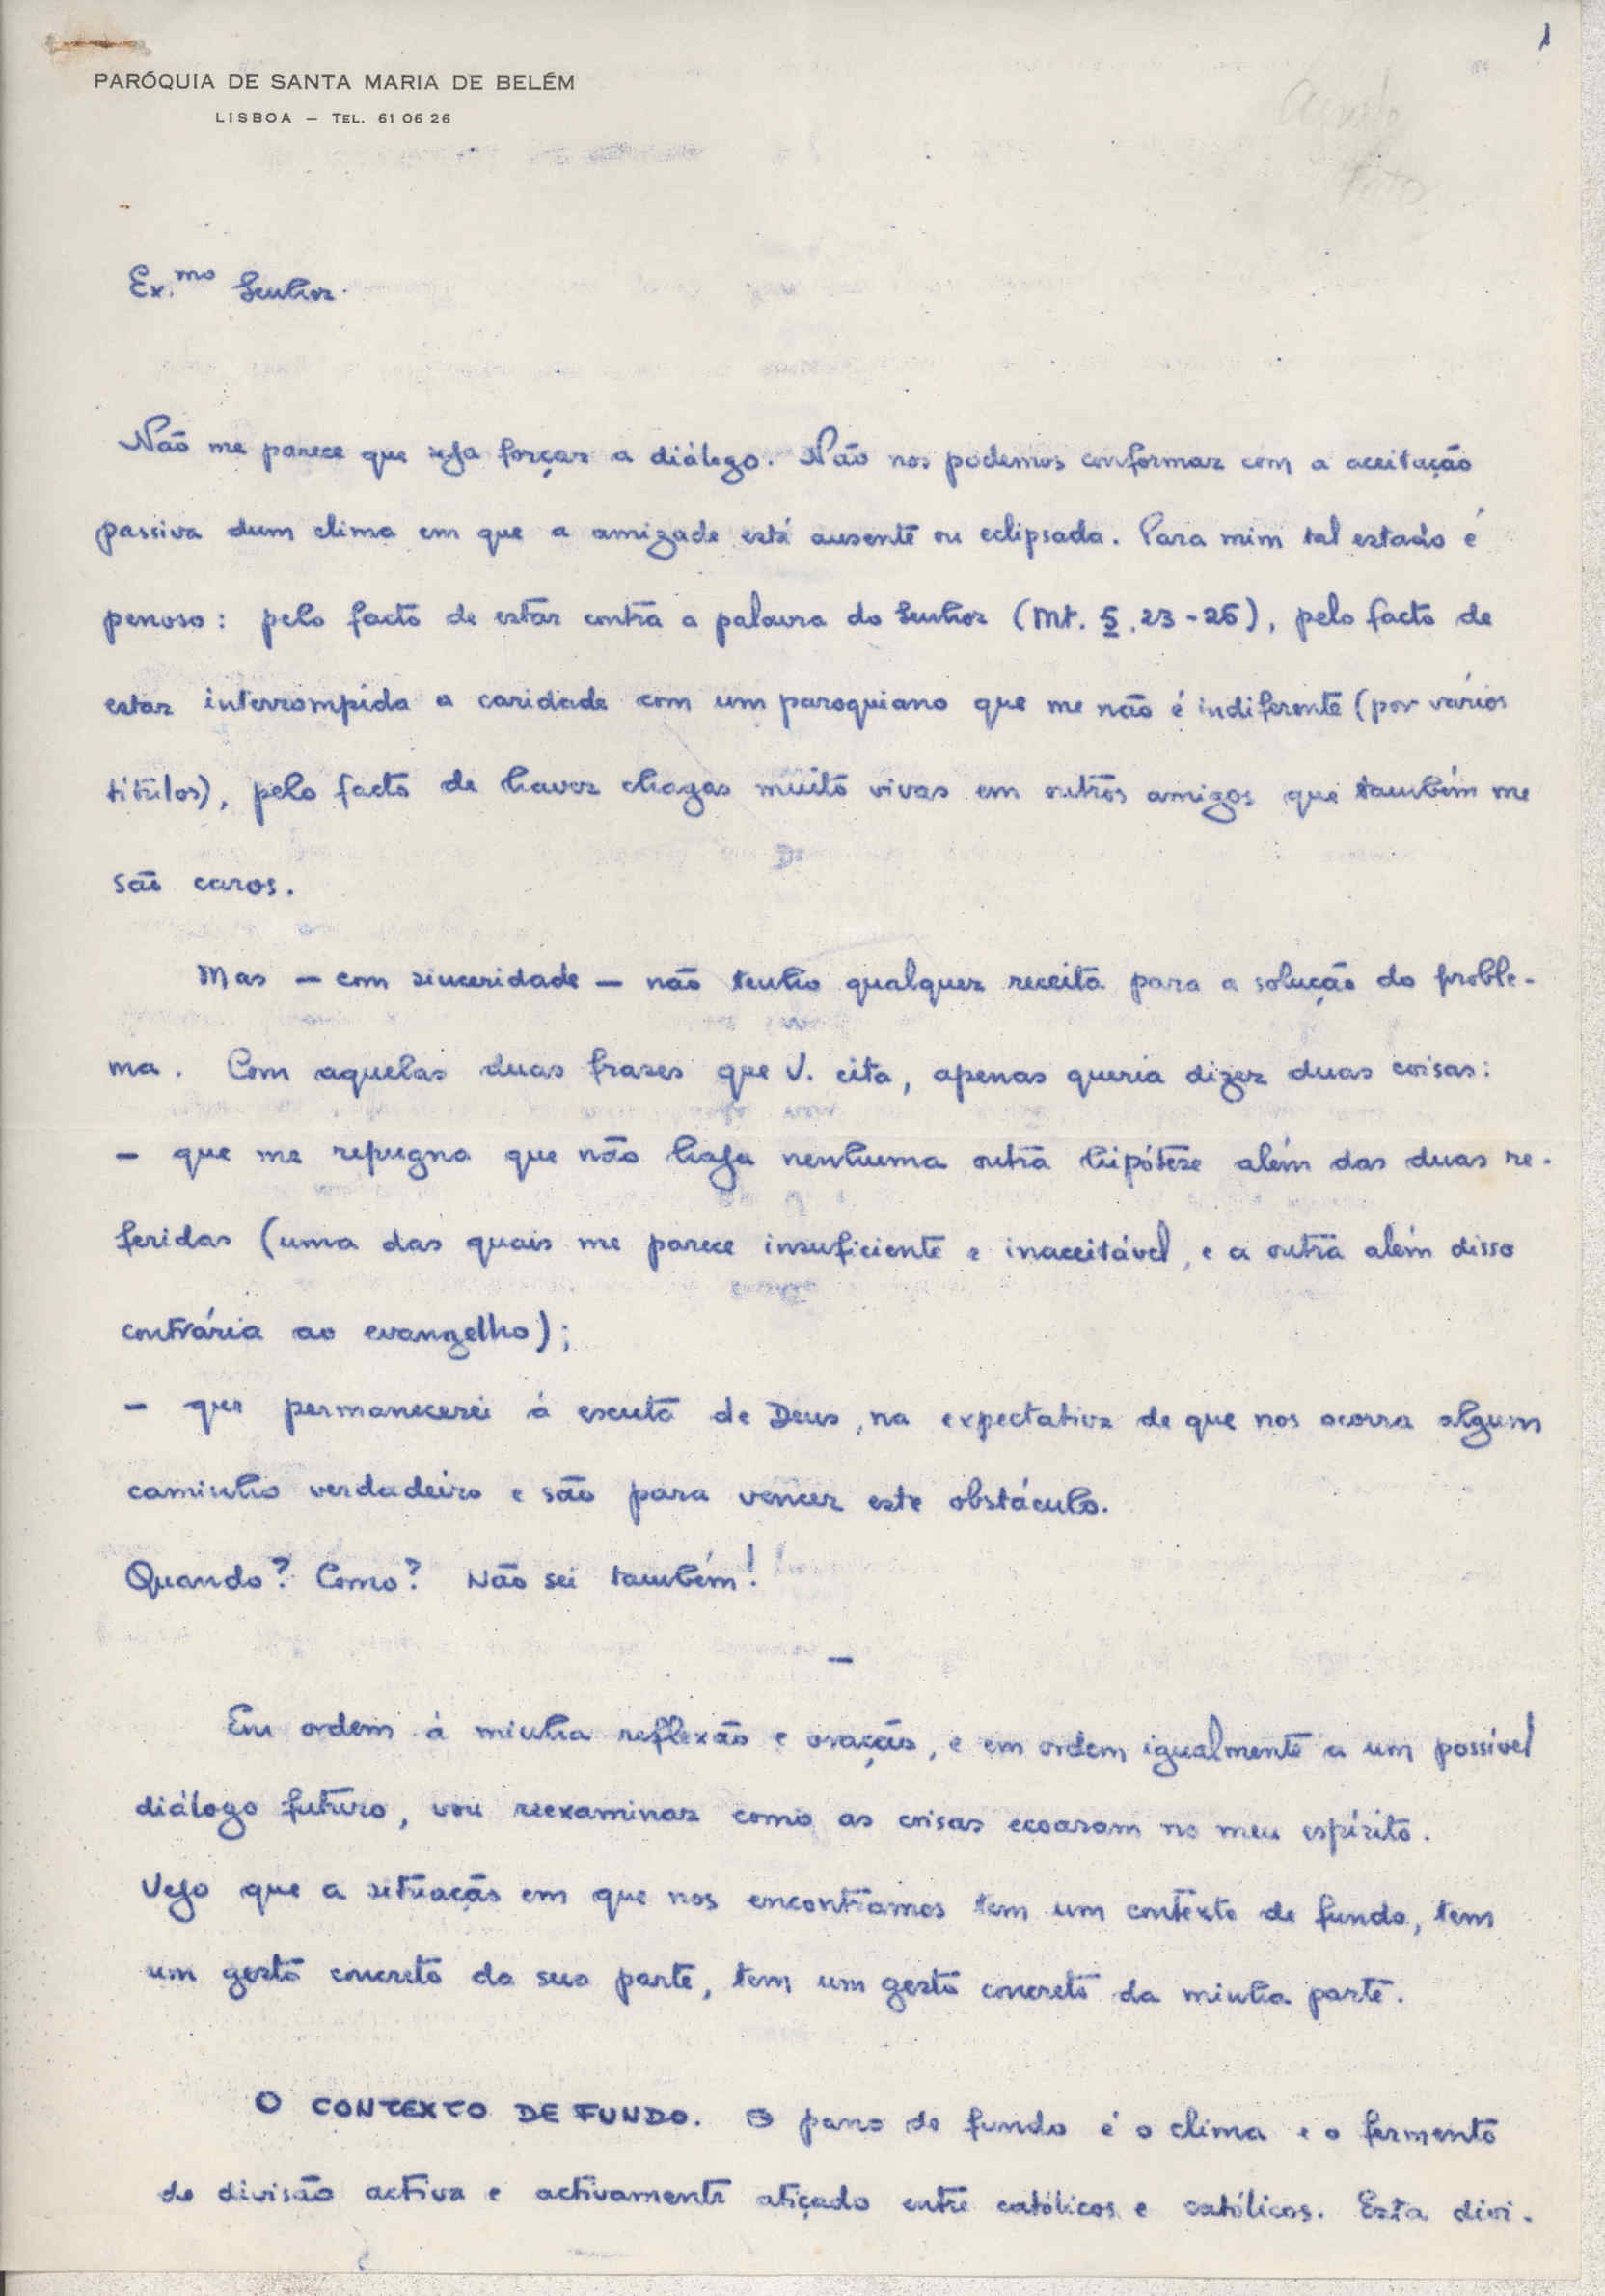 1
PARÓQUIA DE SANTA MARIA DE BELÉM
LISBOA — TEL. 61 06 26
Ex.mo Senhor.
Não me parece que seja forçar o diálogo. Não nos podemos conformar com a aceitação
passiva dum clima em que a amizade está ausente ou eclipsada. Para mim tal estado é
penoso: pelo facto de estar contra a palavra do Senhor (Mt. 5, 23-25), pelo facto de
estar interrompida a caridade com um paroquiano que me não é indiferente (por vários
títulos), pelo facto de haver chagas muito vivas em outros amigos que também me
são caros.
Mas — com sinceridade — não tenho qualquer receita para a solução do proble-
ma. Com aquelas duas frases que V. cita, apenas queria dizer duas coisas:
— que me repugna que não haja nenhuma outra hipótese além das duas re-
feridas (uma das quais me parece insuficiente e inaceitável, e a outra além disso
contrária ao evangelho);
— que permanecerei à escuta de Deus, na expectativa de que nos ocorra algum
caminho verdadeiro e são para vencer este obstáculo.
Quando? Como? Não sei também!
—
Em ordem à minha reflexão e oração, e em ordem igualmente a um possível
diálogo futuro, vou reexaminar como as coisas ecoaram no meu espírito.
Vejo que a situação em que nos encontramos tem um contexto de fundo, tem
um gesto concreto da sua parte, tem um gesto concreto da minha parte.
O CONTEXTO DE FUNDO. O pano de fundo é o clima e o fermento
de divisão activa e activamente atiçado entre católicos e católicos. Esta divi-